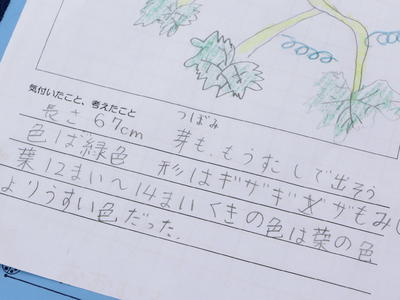 気付いたこと、考えたこと
つぼみ
長さ67cm 芽も、もうすこしで出そう
色は緑色 形はギザギザでもみじ
葉12まい〜14まい くきの色は葉の色
よりうすい色だった。